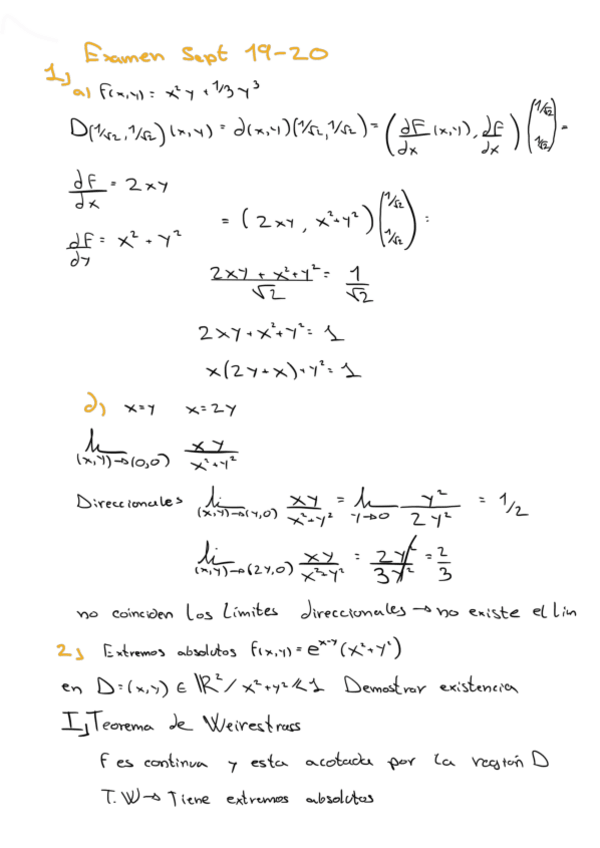 Examen Sept 19-20
1)
a) F(x,y) = x²y + 1/3 y³
D(1/√2, 1/√2)(x,y) = d(x,y)(1/√2, 1/√2) = (dF/dx (x,y), dF/dx) (1/√2 1/√2) =
dF/dx = 2xy
dF/dy = x² + y²
= (2xy, x²+y²) (1/√2 1/√2) =
(2xy + x² + y²)/√2 = 1/√2
2xy + x² + y² = 1
x(2y + x) + y² = 1
d) x=y x=2y
(x,y)→(0,0) xy/(x²+y²)
Direccionales li (x,y)→(y,0) xy/(x²+y²) = y→0 y²/2y² = 1/2
li (x,y)→(2y,0) xy/(x²+y²) = 2y²/3y² = 2/3
no coinciden los límites direccionales → no existe el lim
2) Extremos absolutos f(x,y) = e^(x-y) (x²+y²)
en D = (x,y) ∈ ℝ² / x²+y² ≤ 1 Demostrar existencia
I) Teorema de Weirestrass
F es continua y esta acotada por la región D
T.W → Tiene extremos absolutos